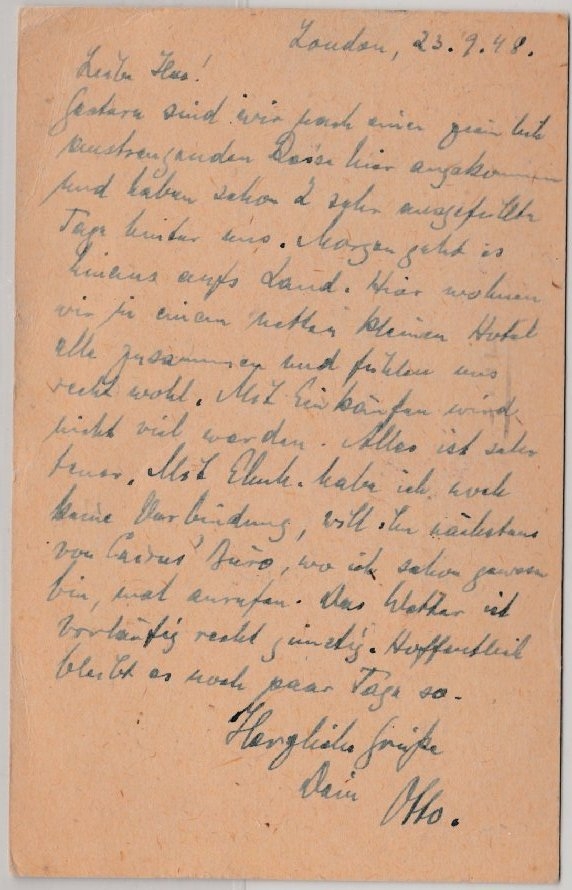 London, 23.9.48.
Liebe
Gestern sind wir nach einer ziemlich
anstrengenden Reise hier angekommen
und haben schon 2 sehr ausgefüllte
Tage hinter uns. Morgen geht es
hinaus aufs Land. Hier wohnen
wir in einem netten kleinen Hotel
alle zusammen und fühlen uns
recht wohl. Mit Einkäufen wird
nicht viel werden. Alles ist sehr
teuer. Mit habe ich noch
keine Verbindung, will ihn nächstens
von Büro, wo ich schon gewesen
bin, mal anrufen. Das Wetter ist
vorläufig recht günstig. Hoffentlich
bleibt es noch paar Tage so.
Herzliche Grüße
Dein Otto.